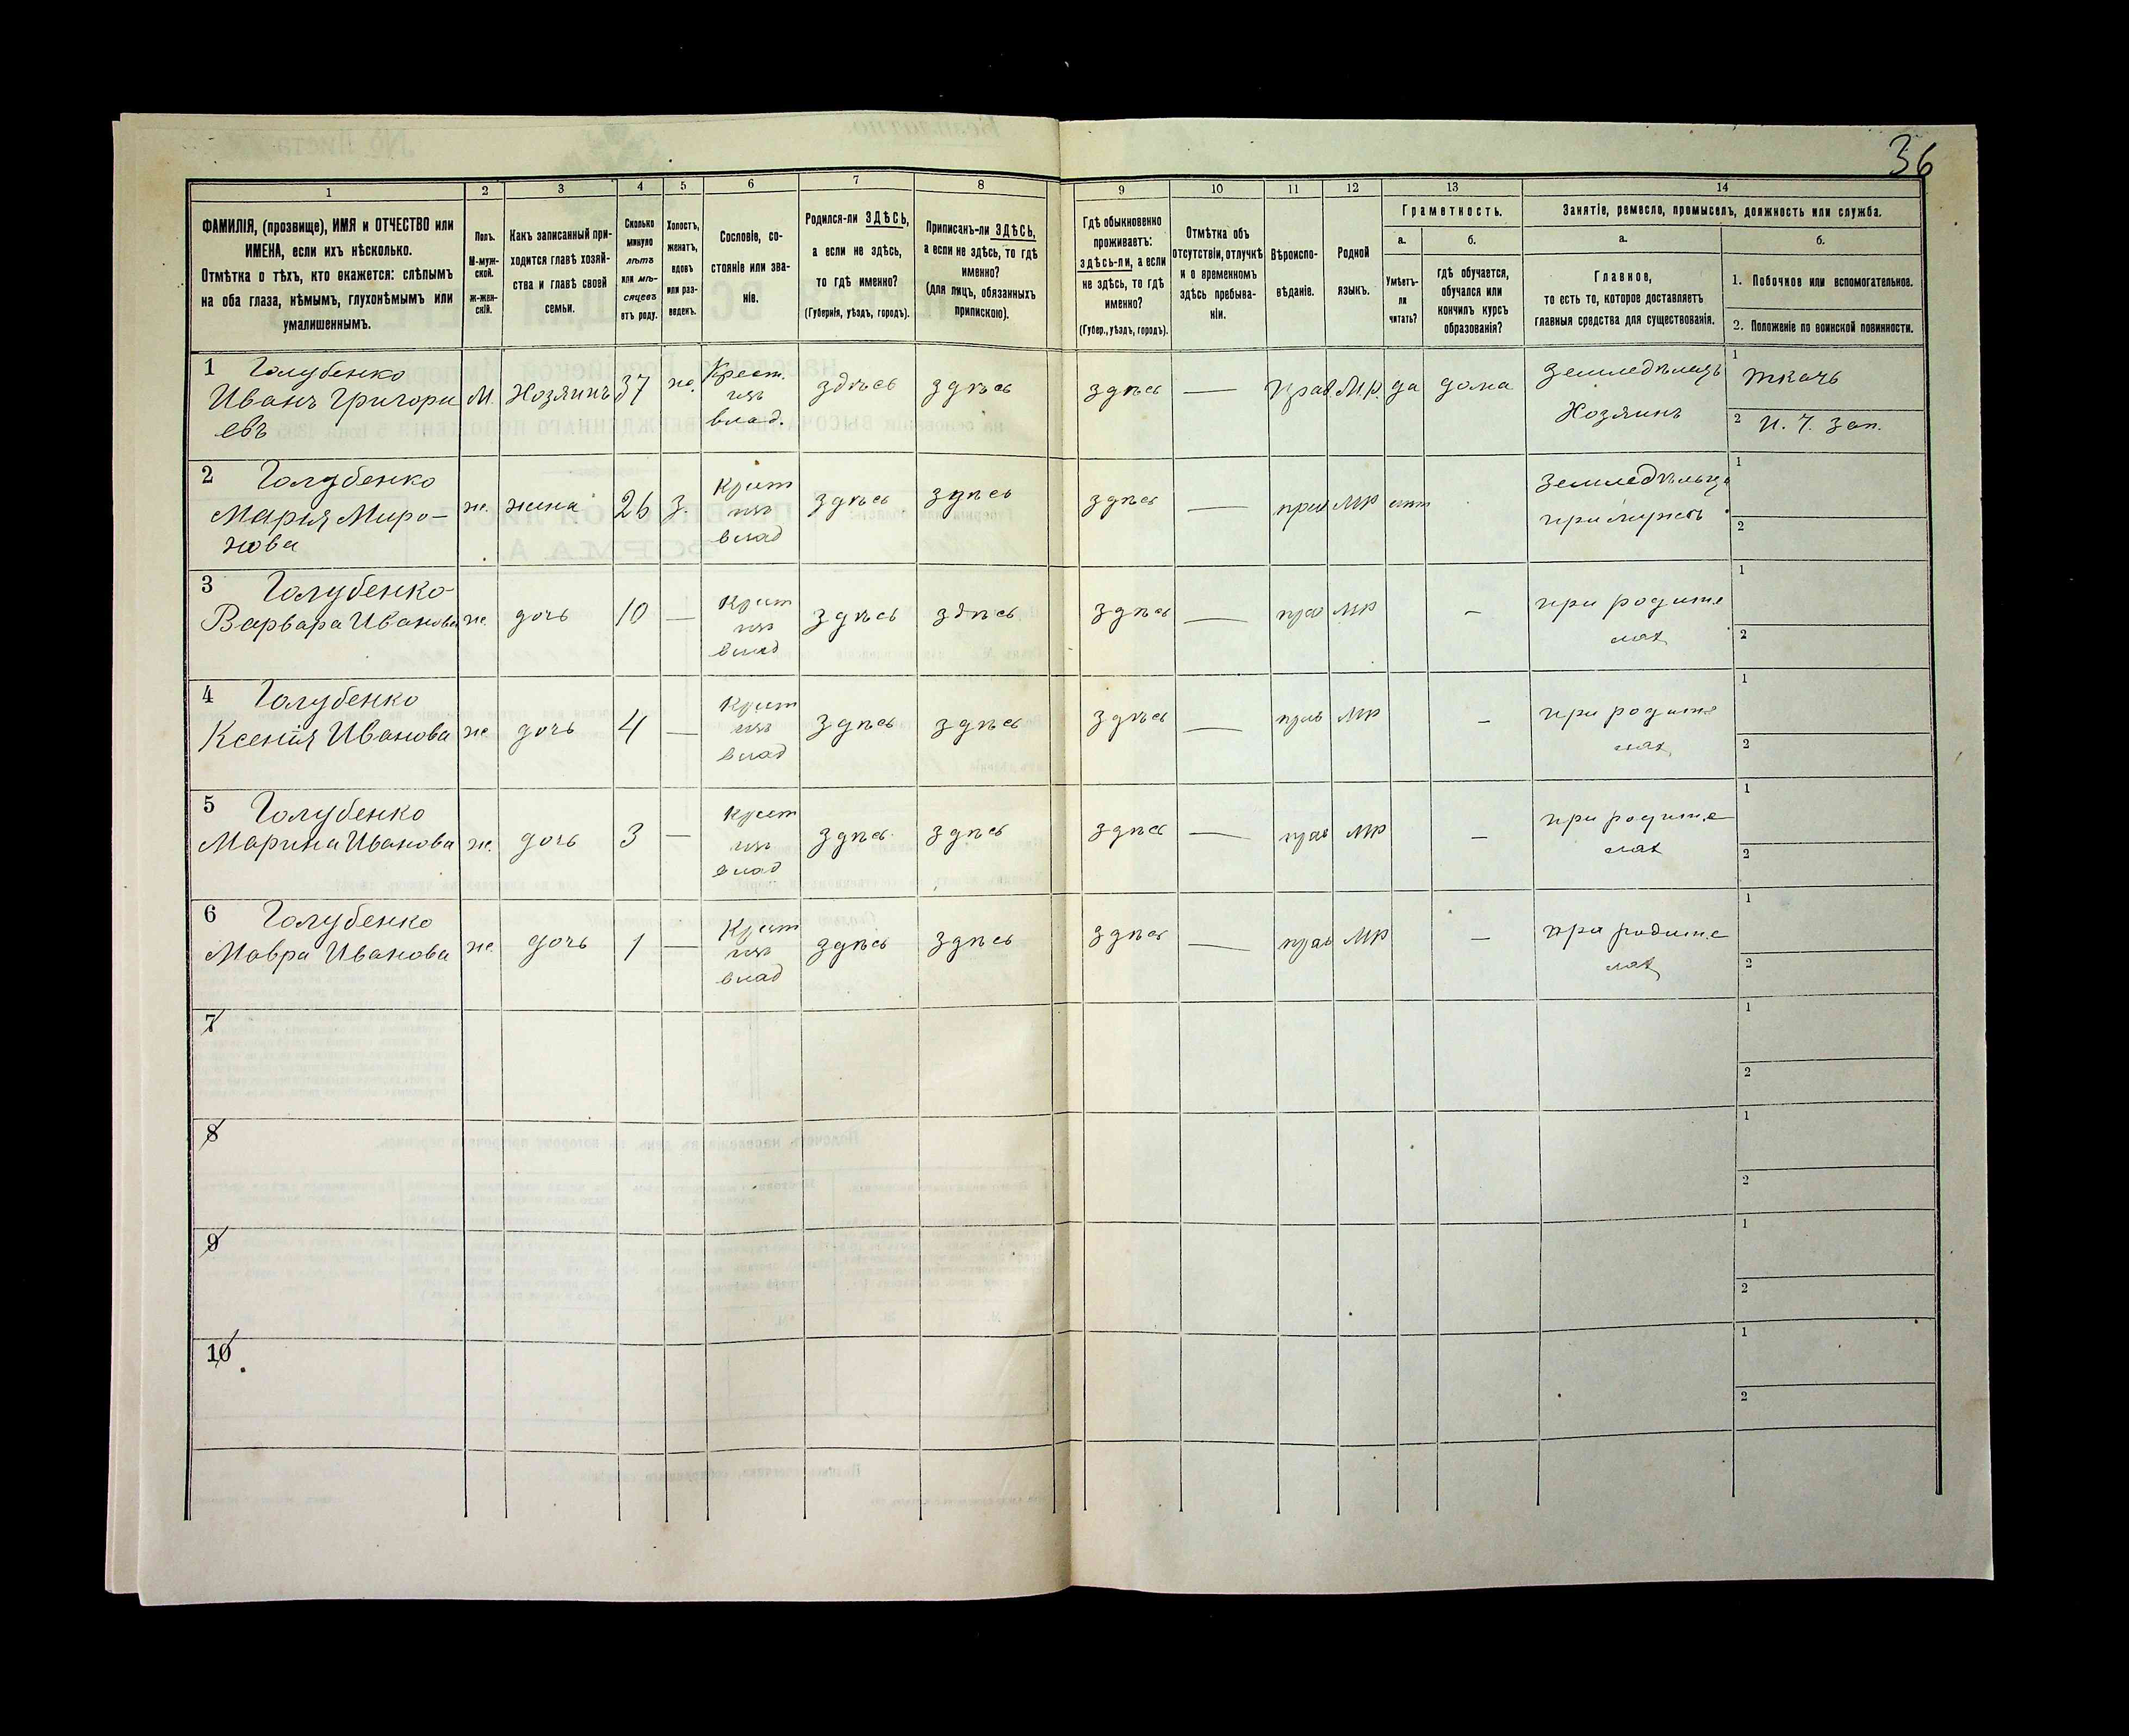 36
1 2 3 4 5 6 7 8 9 10 11 12 13 14
ФАМИЛІЯ, (прозвище), ИМЯ и ОТЧЕСТВО или
ИМЕНА, если ихъ нѣсколько.
Отмѣтка о тѣхъ, кто окажется: слѣпымъ
на оба глаза, нѣмымъ, глухонѣмымъ или
умалишеннымъ.
Полъ.
М-муж-
ской.
Ж-жен-
скій.
Какъ записанный при-
ходится главѣ хозяй-
ства и главѣ своей
семьи.
Сколько
минуло
лѣтъ
или мѣ-
сяцевъ
отъ роду.
Холостъ,
женатъ,
вдовъ
или раз-
веденъ.
Сословіе, со-
стояніе или зва-
ніе.
Родился-ли ЗДѢСЬ,
а если не здѣсь,
то гдѣ именно?
(Губернія, уѣздъ, городъ).
Приписанъ-ли ЗДѢСЬ,
а если не здѣсь, то гдѣ
именно?
(для лицъ, обязанныхъ
припискою).
Гдѣ обыкновенно
проживаетъ:
здѣсь-ли, а если
не здѣсь, то гдѣ
именно?
(Губер., уѣздъ, городъ).
Отмѣтка объ
отсутствіи, отлучкѣ
и о временномъ
здѣсь пребыва-
ніи.
Вѣроиспо-
вѣданіе.
Родной
языкъ.
Грамотность.
а.
Умѣетъ-
ли
читать?
б.
гдѣ обучается,
обучался или
кончилъ курсъ
образованія?
Занятіе, ремесло, промыселъ, должность или служба.
а.
Главное,
то есть то, которое доставляетъ
главныя средства для существованія.
б.
1. Побочное или вспомогательное.
2. Положеніе по воинской повинности.
1 Голубенко
Иванъ Григори
евъ
М. Хозяинъ 37 ж.
Крест.
изъ
влад.
здѣсь здѣсь здѣсь — Прав. М.р. да дома
Земледѣлецъ
Хозяинъ
1 ткачь
2 И. 7. зап.
2 Голубенко
Марья Миро-
нова
ж. жена 26 з.
Крест
изъ
влад
здѣсь здѣсь здѣсь — прав МР
Земледѣльца
при мужѣ
1
2
3 Голубенко
Варвара Иванова
ж. дочь 10 —
Крест
изъ
влад
здѣсь здѣсь здѣсь — прав МР —
при родите
лях
1
2
4 Голубенко
Ксенія Иванова
ж дочь 4 —
Крест
изъ
влад
здѣсь здѣсь здѣсь — прав МР —
при родите
лях
1
2
5 Голубенко
Марина Иванова
ж. дочь 3 —
Крест
изъ
влад
здѣсь здѣсь здѣсь — прав МР —
при родите
лях
1
2
6 Голубенко
Мавра Иванова
ж. дочь 1 —
Крест
изъ
влад
здѣсь здѣсь здѣсь — прав МР —
при родите
лях
1
2
7
1
2
8
1
2
9
1
2
10
1
2